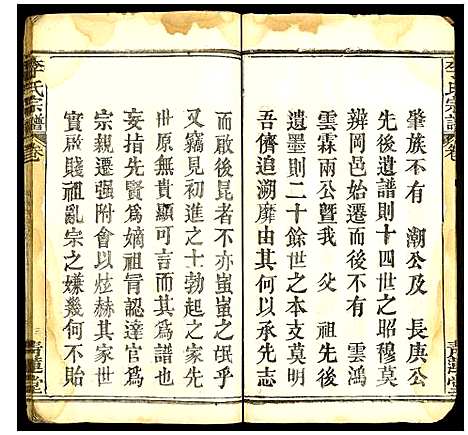 肇族不有　潮公及　長庚公
先後遺譜則十四世之昭穆莫
辨岡邑始遷而後不有　雲鴻
雲霖兩公暨我　父　祖先後
遺墨則二十餘世之本支莫明
吾儕追溯靡由其何以承先志
李氏宗譜　卷
青蓮堂
而啟後昆者不亦蚩蚩之氓乎
又竊見初進之士勃起之家先
世原無貴顯可言而其爲譜也
妄指先賢爲嫡祖冐認達官爲
宗親遷强附會以炫赫其家世
實啟賤祖亂宗之嫌幾何不貽
李氏宗譜　卷
青蓮堂